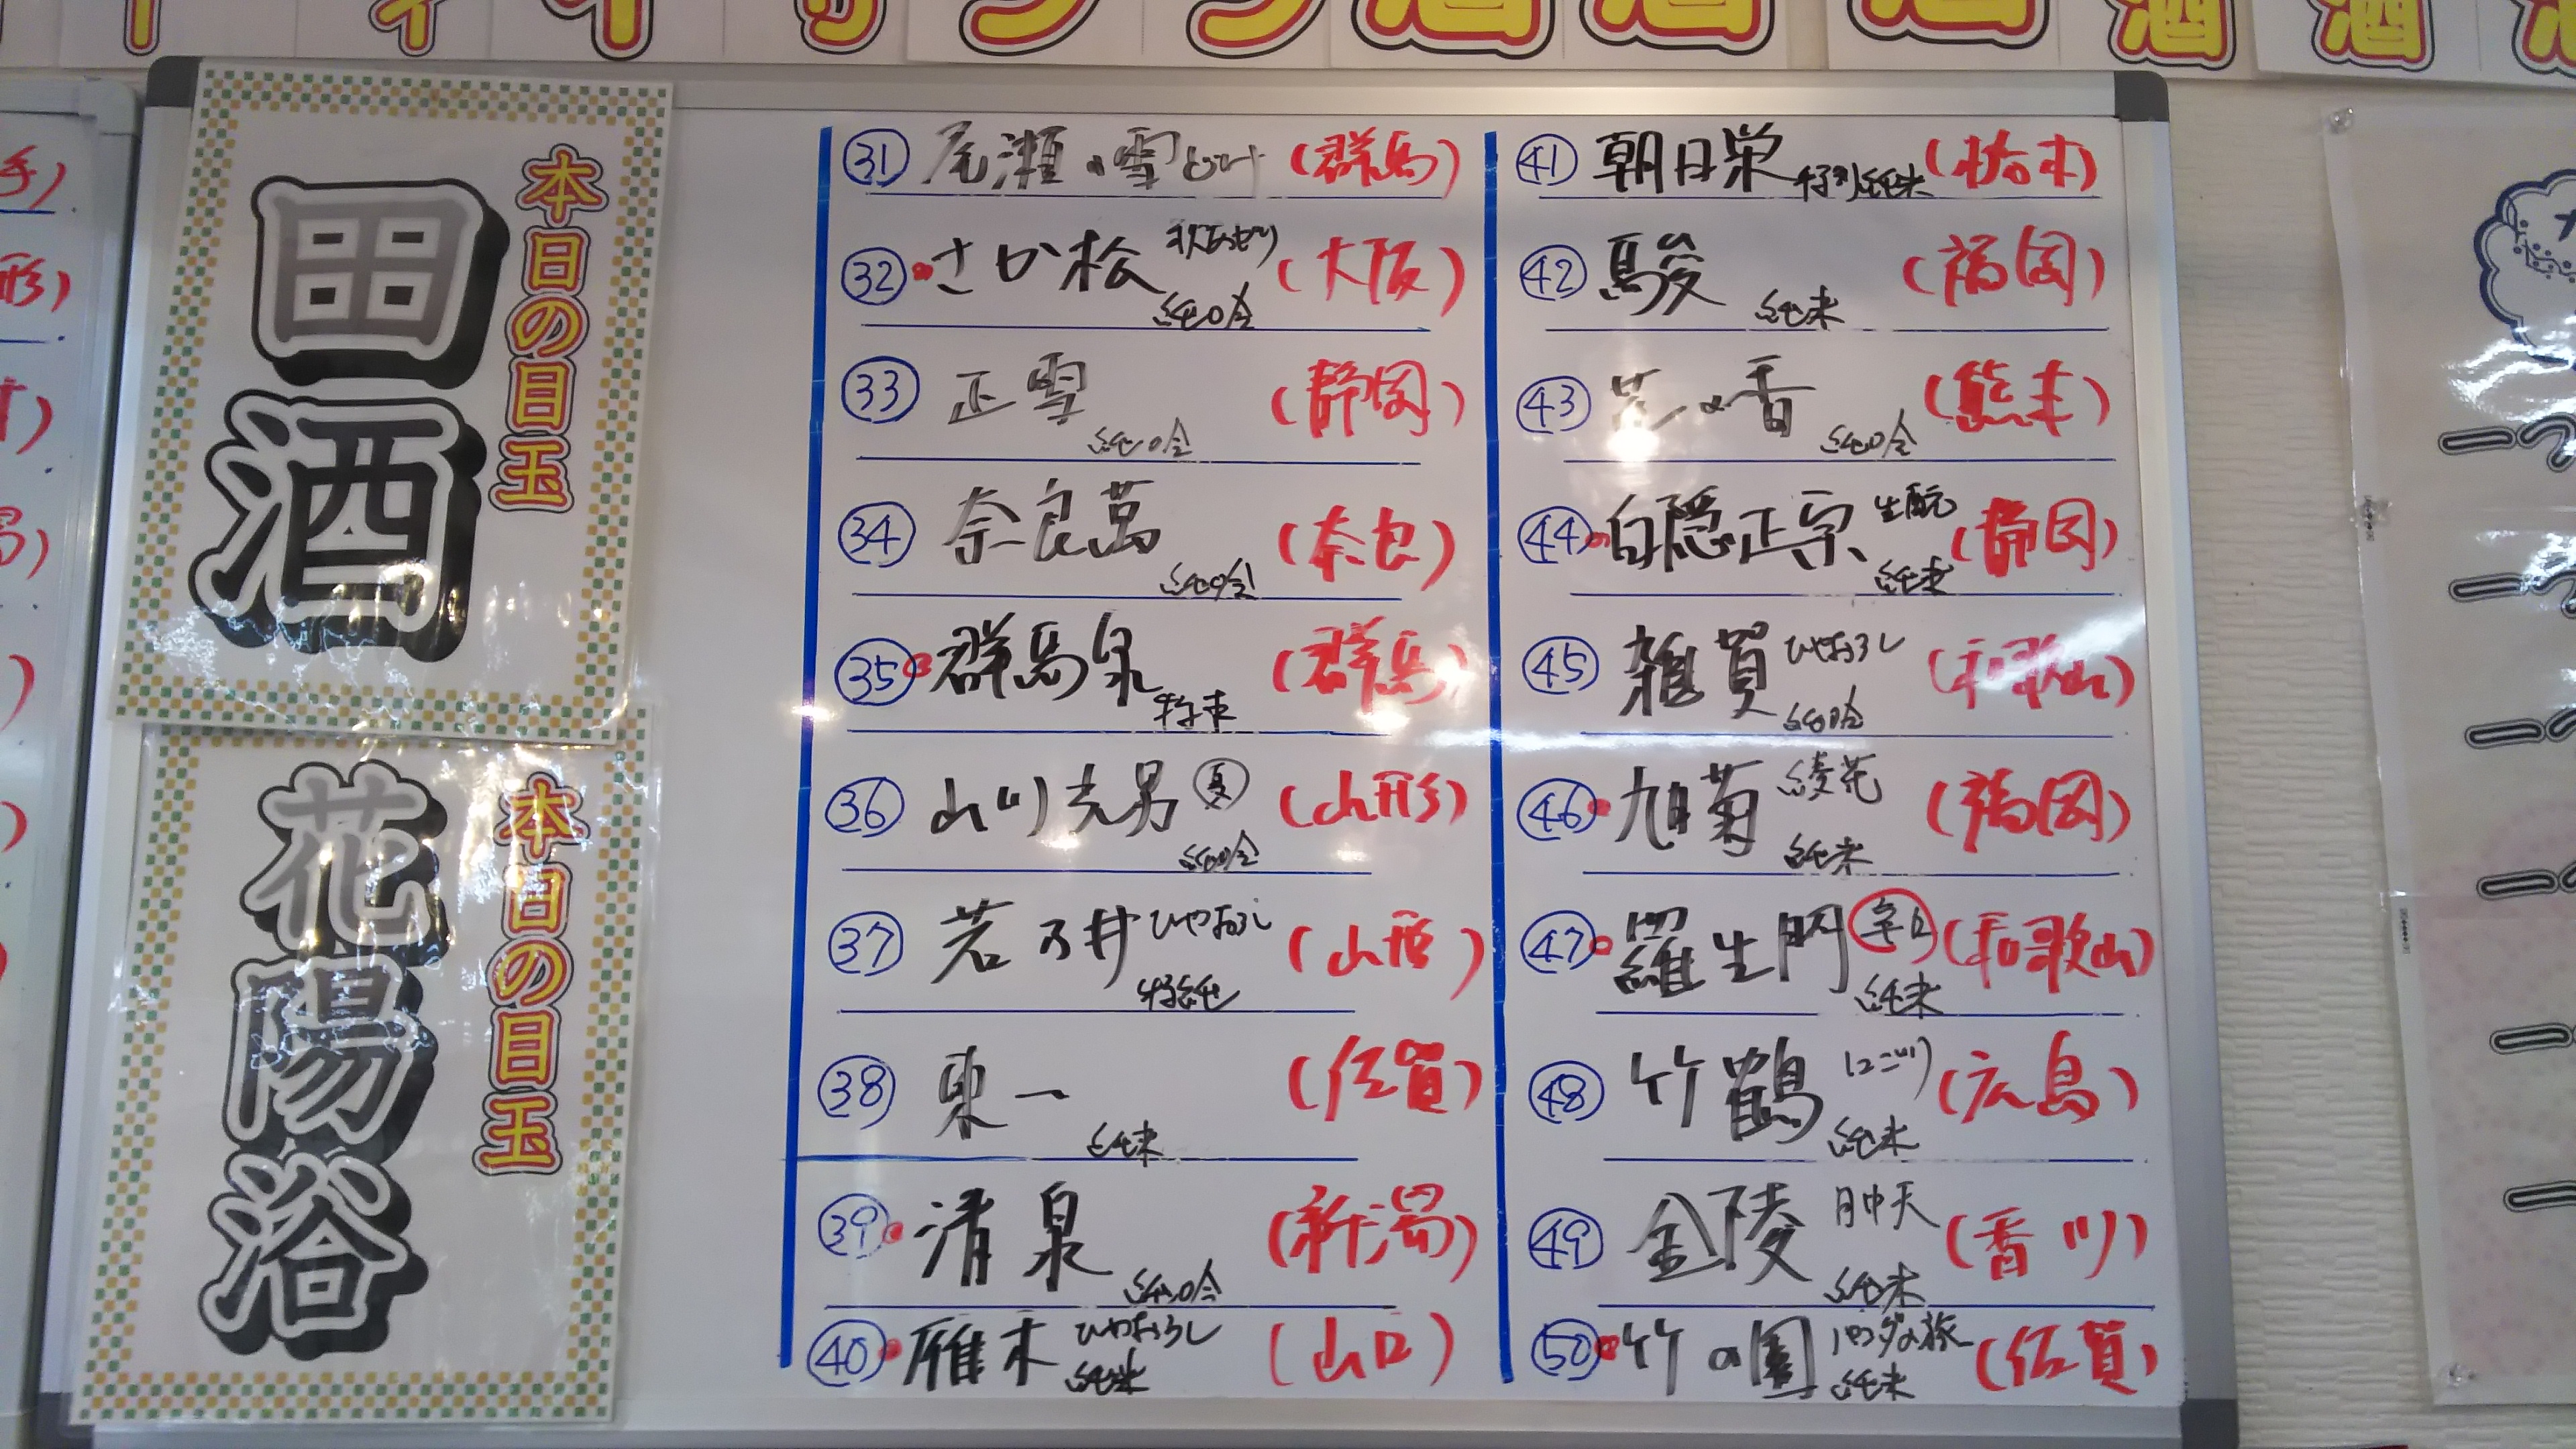 本日の目玉
田酒
本日の目玉
花陽浴
㉛ 尾瀬の雪どけ (群馬)
㉜ さか松 秋あがり 純吟 (大阪)
㉝ 正雪 純吟 (静岡)
㉞ 奈良萬 純吟 (奈良)
㉟ 群馬泉 (群馬)
㊱ 山川光男 夏 純吟 (山形)
㊲ 若乃井 ひやおろし 特純 (山形)
㊳ 東一 純米 (佐賀)
㊴ 清泉 純吟 (新潟)
㊵ 雁木 ひやおろし 純米 (山口)
㊶ 朝日栄 特別純米 (栃木)
㊷ 駿 純米 (福岡)
㊸ 花の香 純吟 (熊本)
㊹ 白隠正宗 生酛 純米 (静岡)
㊺ 雑賀 ひやおろし 純吟 (和歌山)
㊻ 旭菊 綾花 純米 (福岡)
㊼ 羅生門 辛口 純米 (和歌山)
㊽ 竹鶴 にごり 純米 (広島)
㊾ 金陵 月中天 純米 (香川)
㊿ 竹の園 パンダの旅 純米 (佐賀)